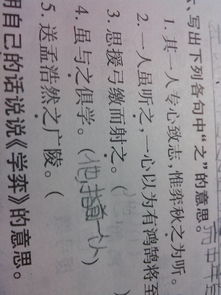 写出下列各句中“之”的意思。
1. 其一人专心致志，惟弈秋之为听。
2. 一人虽听之，一心以为有鸿鹄将至
3. 思援弓缴而射之。（
4. 虽与之俱学。（他指前一个人）
5. 送孟浩然之广陵。（
用自己的话说说《学弈》的意思。